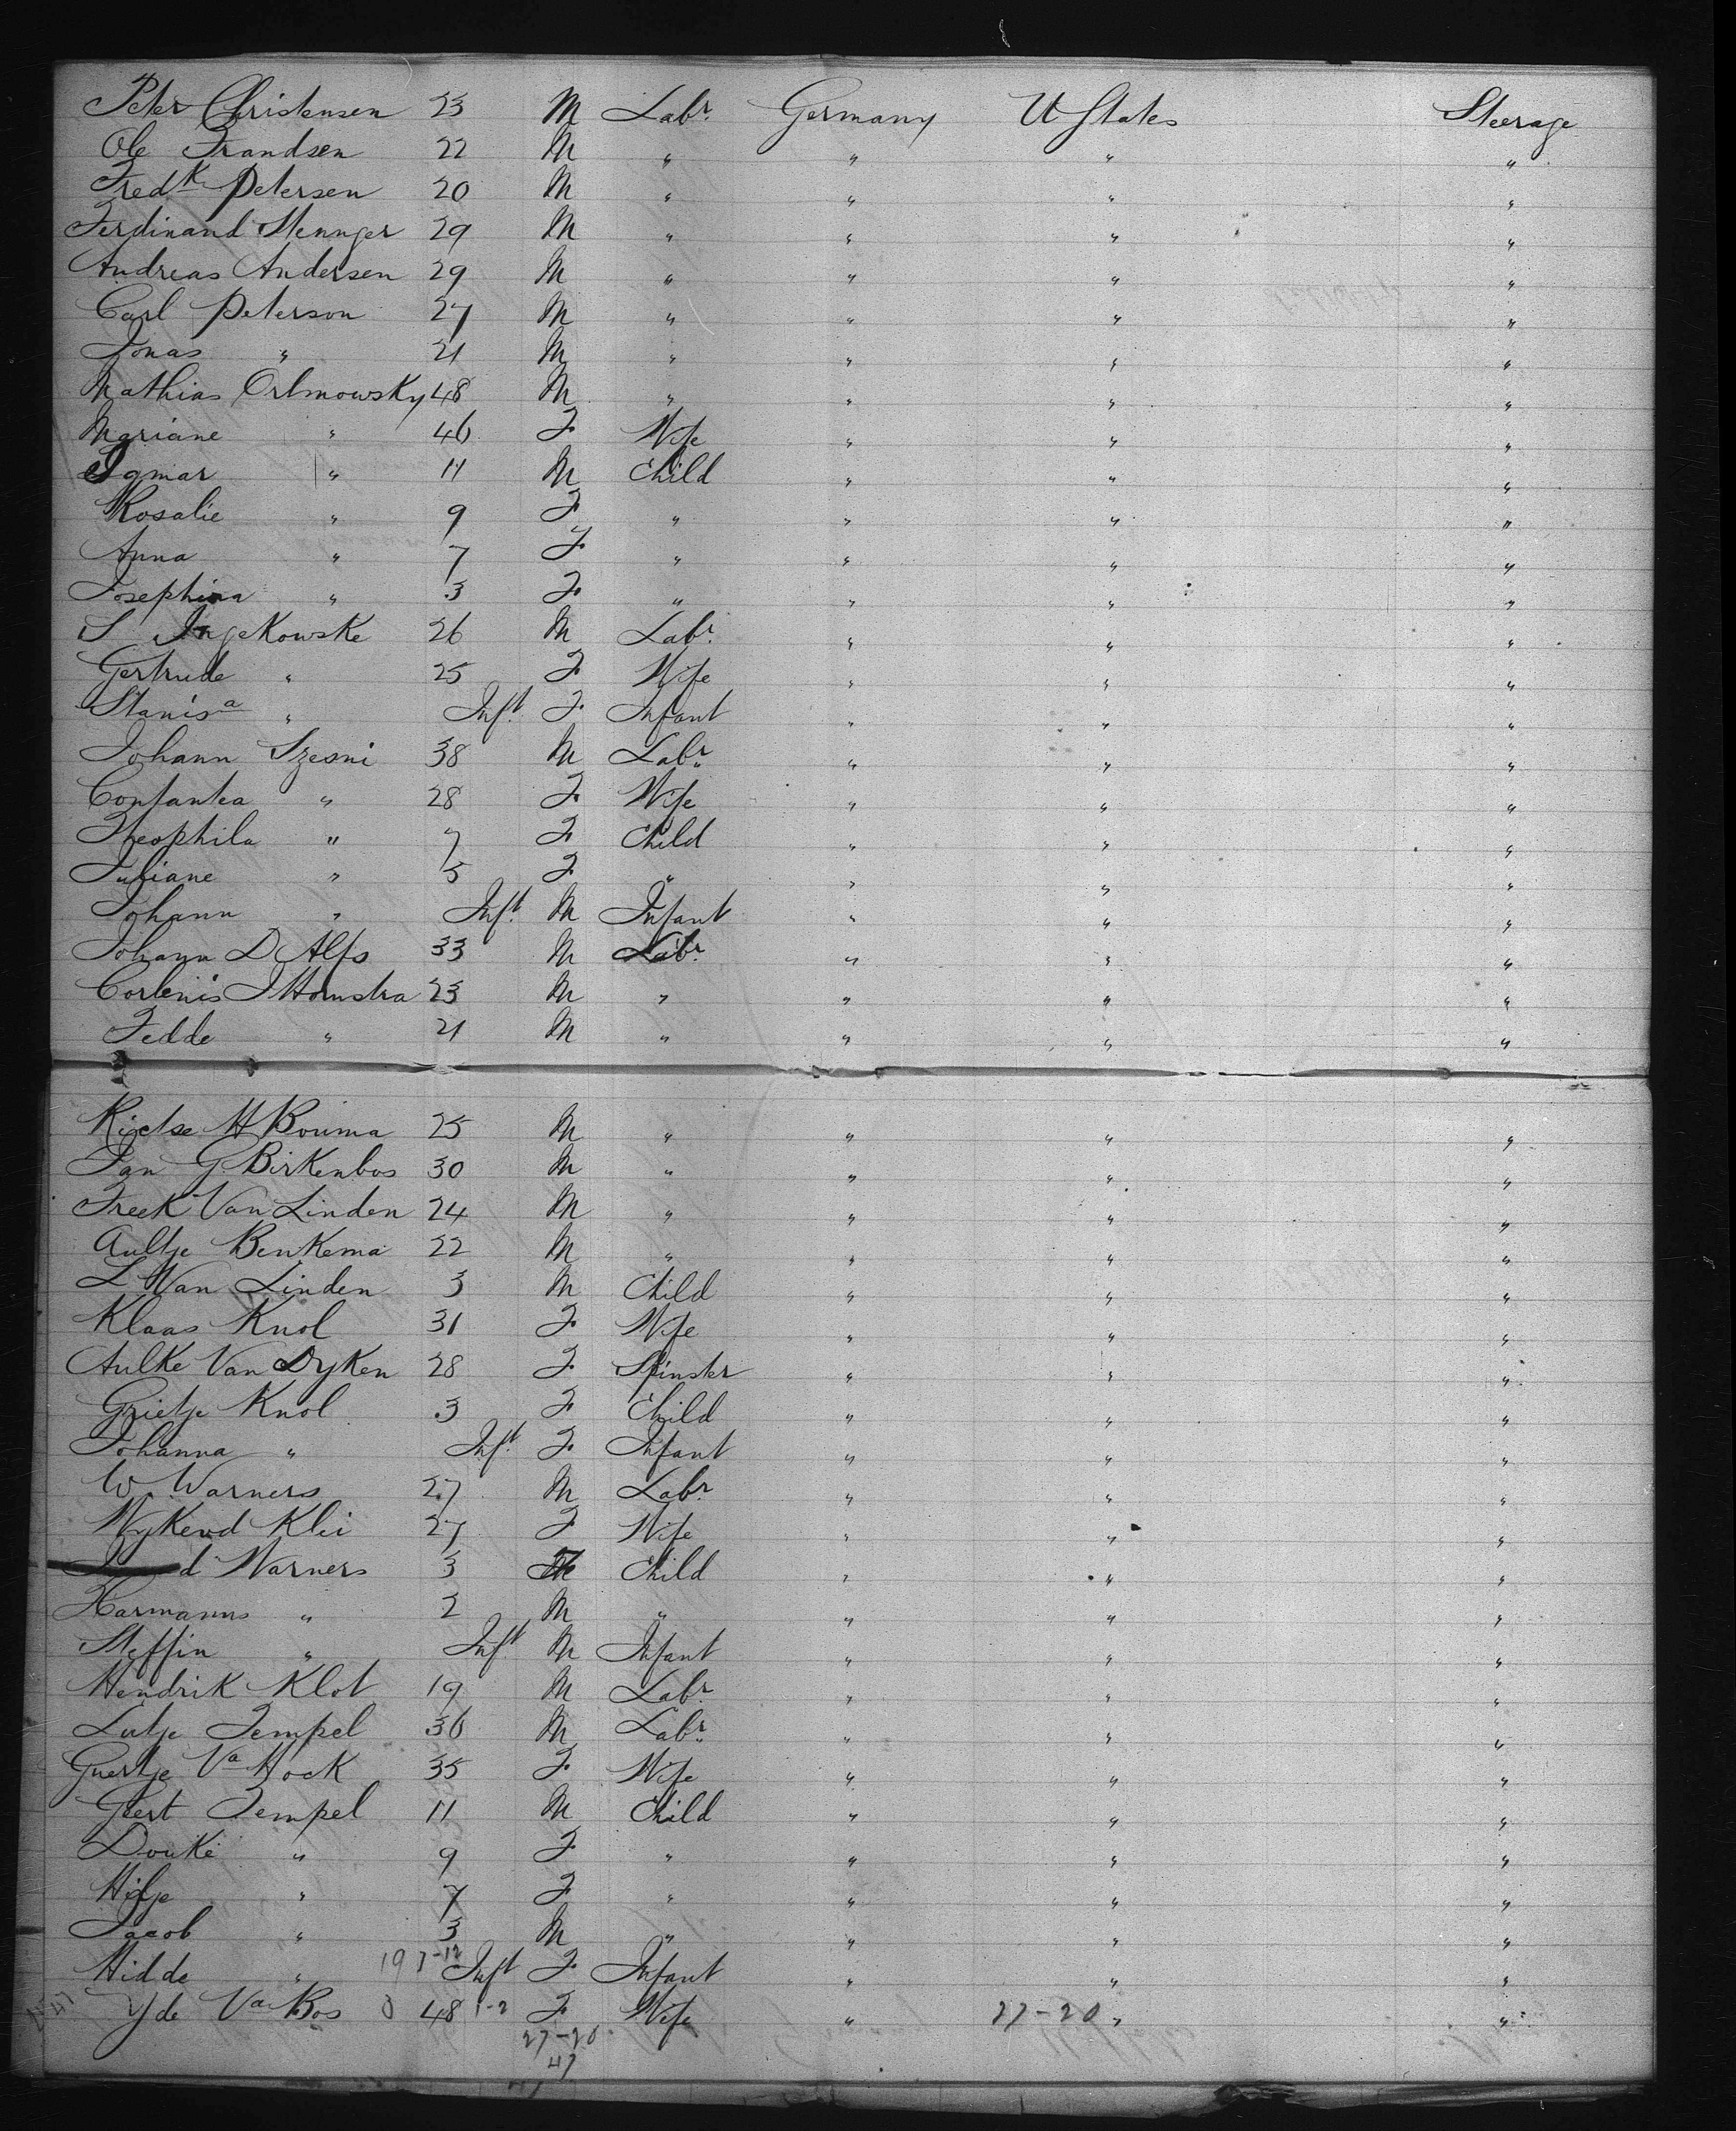 Peter Christensen 23 M Labr. Germany U States Steerage
Ole Frandsen 22 M " " " "
Fredk Petersen 20 M " " " "
Ferdinand Stennger 29 M " " " "
Andreas Andersen 29 M " " " "
Carl Peterson 27 M " " " "
Jonas " 21 M " " " "
Mathias Orlmowsky 48 M " " " "
Mariane " 46 F Wife " " "
Igmar " 11 M Child " " "
Rosalie " 9 F " " " "
Anna " 7 F " " " "
Josephina " 3 F " " " "
S IngeKowske 26 M Labr. " " "
Gertrude " 25 F Wife " " "
Stanisa " Inft. F Infant " " "
Johann Szesni 38 M Labr. " " "
Contantea " 28 F Wife " " "
Theophila " 7 F Child " " "
Juliane " 5 F " " " "
Johann " Inft. M Infant " " "
Johann D Alfs 33 M Labr. " " "
Corlenis J Hornstra 23 M " " " "
Fedde " 21 M " " " "
Rietse H Bouma 25 M " " " "
Jan G. Birkenbos 30 M " " " "
Freek Van Linden 24 M " " " "
Aultje Benkema 22 M " " " "
L Van Linden 3 M Child " " "
Klaas Knol 31 F Wife " " "
Aulke Van Dyken 28 F Spinster " " "
Grietje Knol 3 F Child " " "
Johanna " Inft. F Infant " " "
W. Warners 27 M Labr. " " "
Wykend Klei 27 F Wife " " "
d Warners 3 Child " " "
Harmanns " 2 M " " " "
Steffin " Inft. M Infant " " "
Hendrik Klot 19 M Labr. " " "
Lutje Tempel 36 M Labr. " " "
Guertje Va Hock 35 F Wife " " "
Geert Tempel 11 M Child " " "
Douke " 9 F " " " "
Hilje " 7 F " " " "
Jacob " 3 M " " " "
Hidde " 19 7-12 Inft F Infant " " "
Yde Va Bos 0 48 1-2 F Wife " 27-20 " "
27-20
47